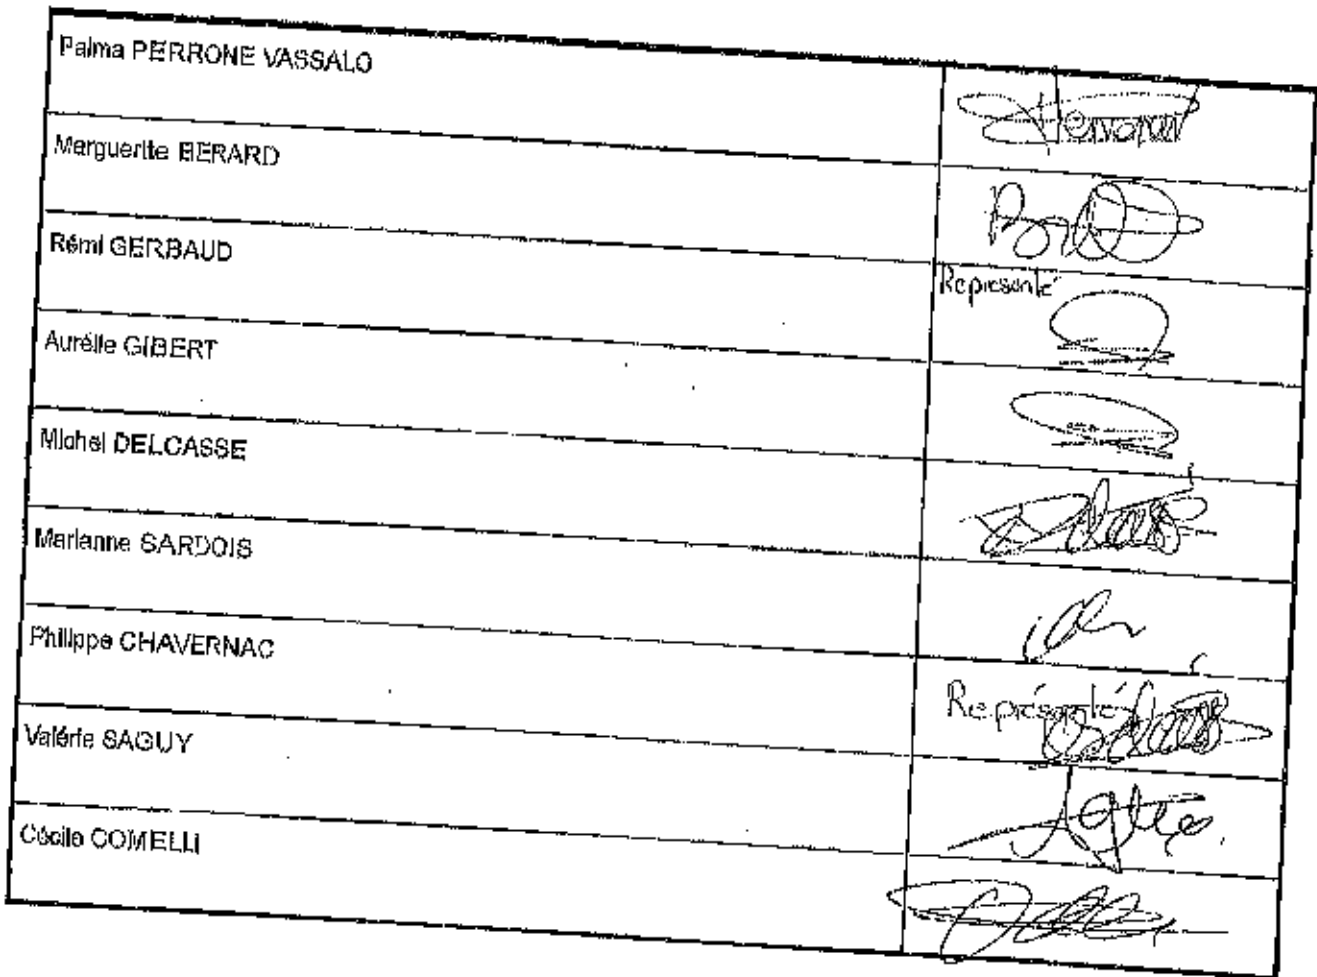 Palma PERRONE VASSALO
Marguerite BERARD
Rémi GERBAUD
Représenté
Aurélie GIBERT
Michel DELCASSE
Marianne SARDOIS
Philippe CHAVERNAC
Représenté
Valérie SAGUY
Cécile COMELLI